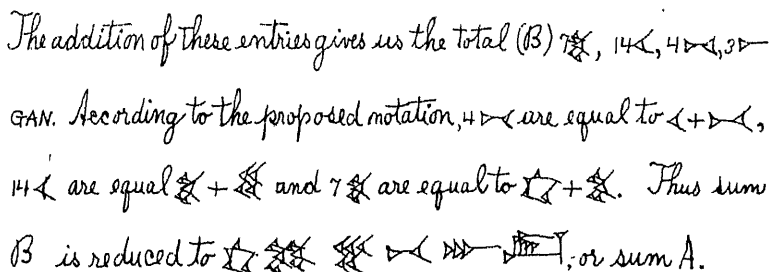 The addition of these entries gives us the total (B) 7, 14, 4, 3
GAN. According to the proposed notation, 4 are equal to + ,
14 are equal + and 7 are equal to + . Thus sum
B is reduced to , or sum A.